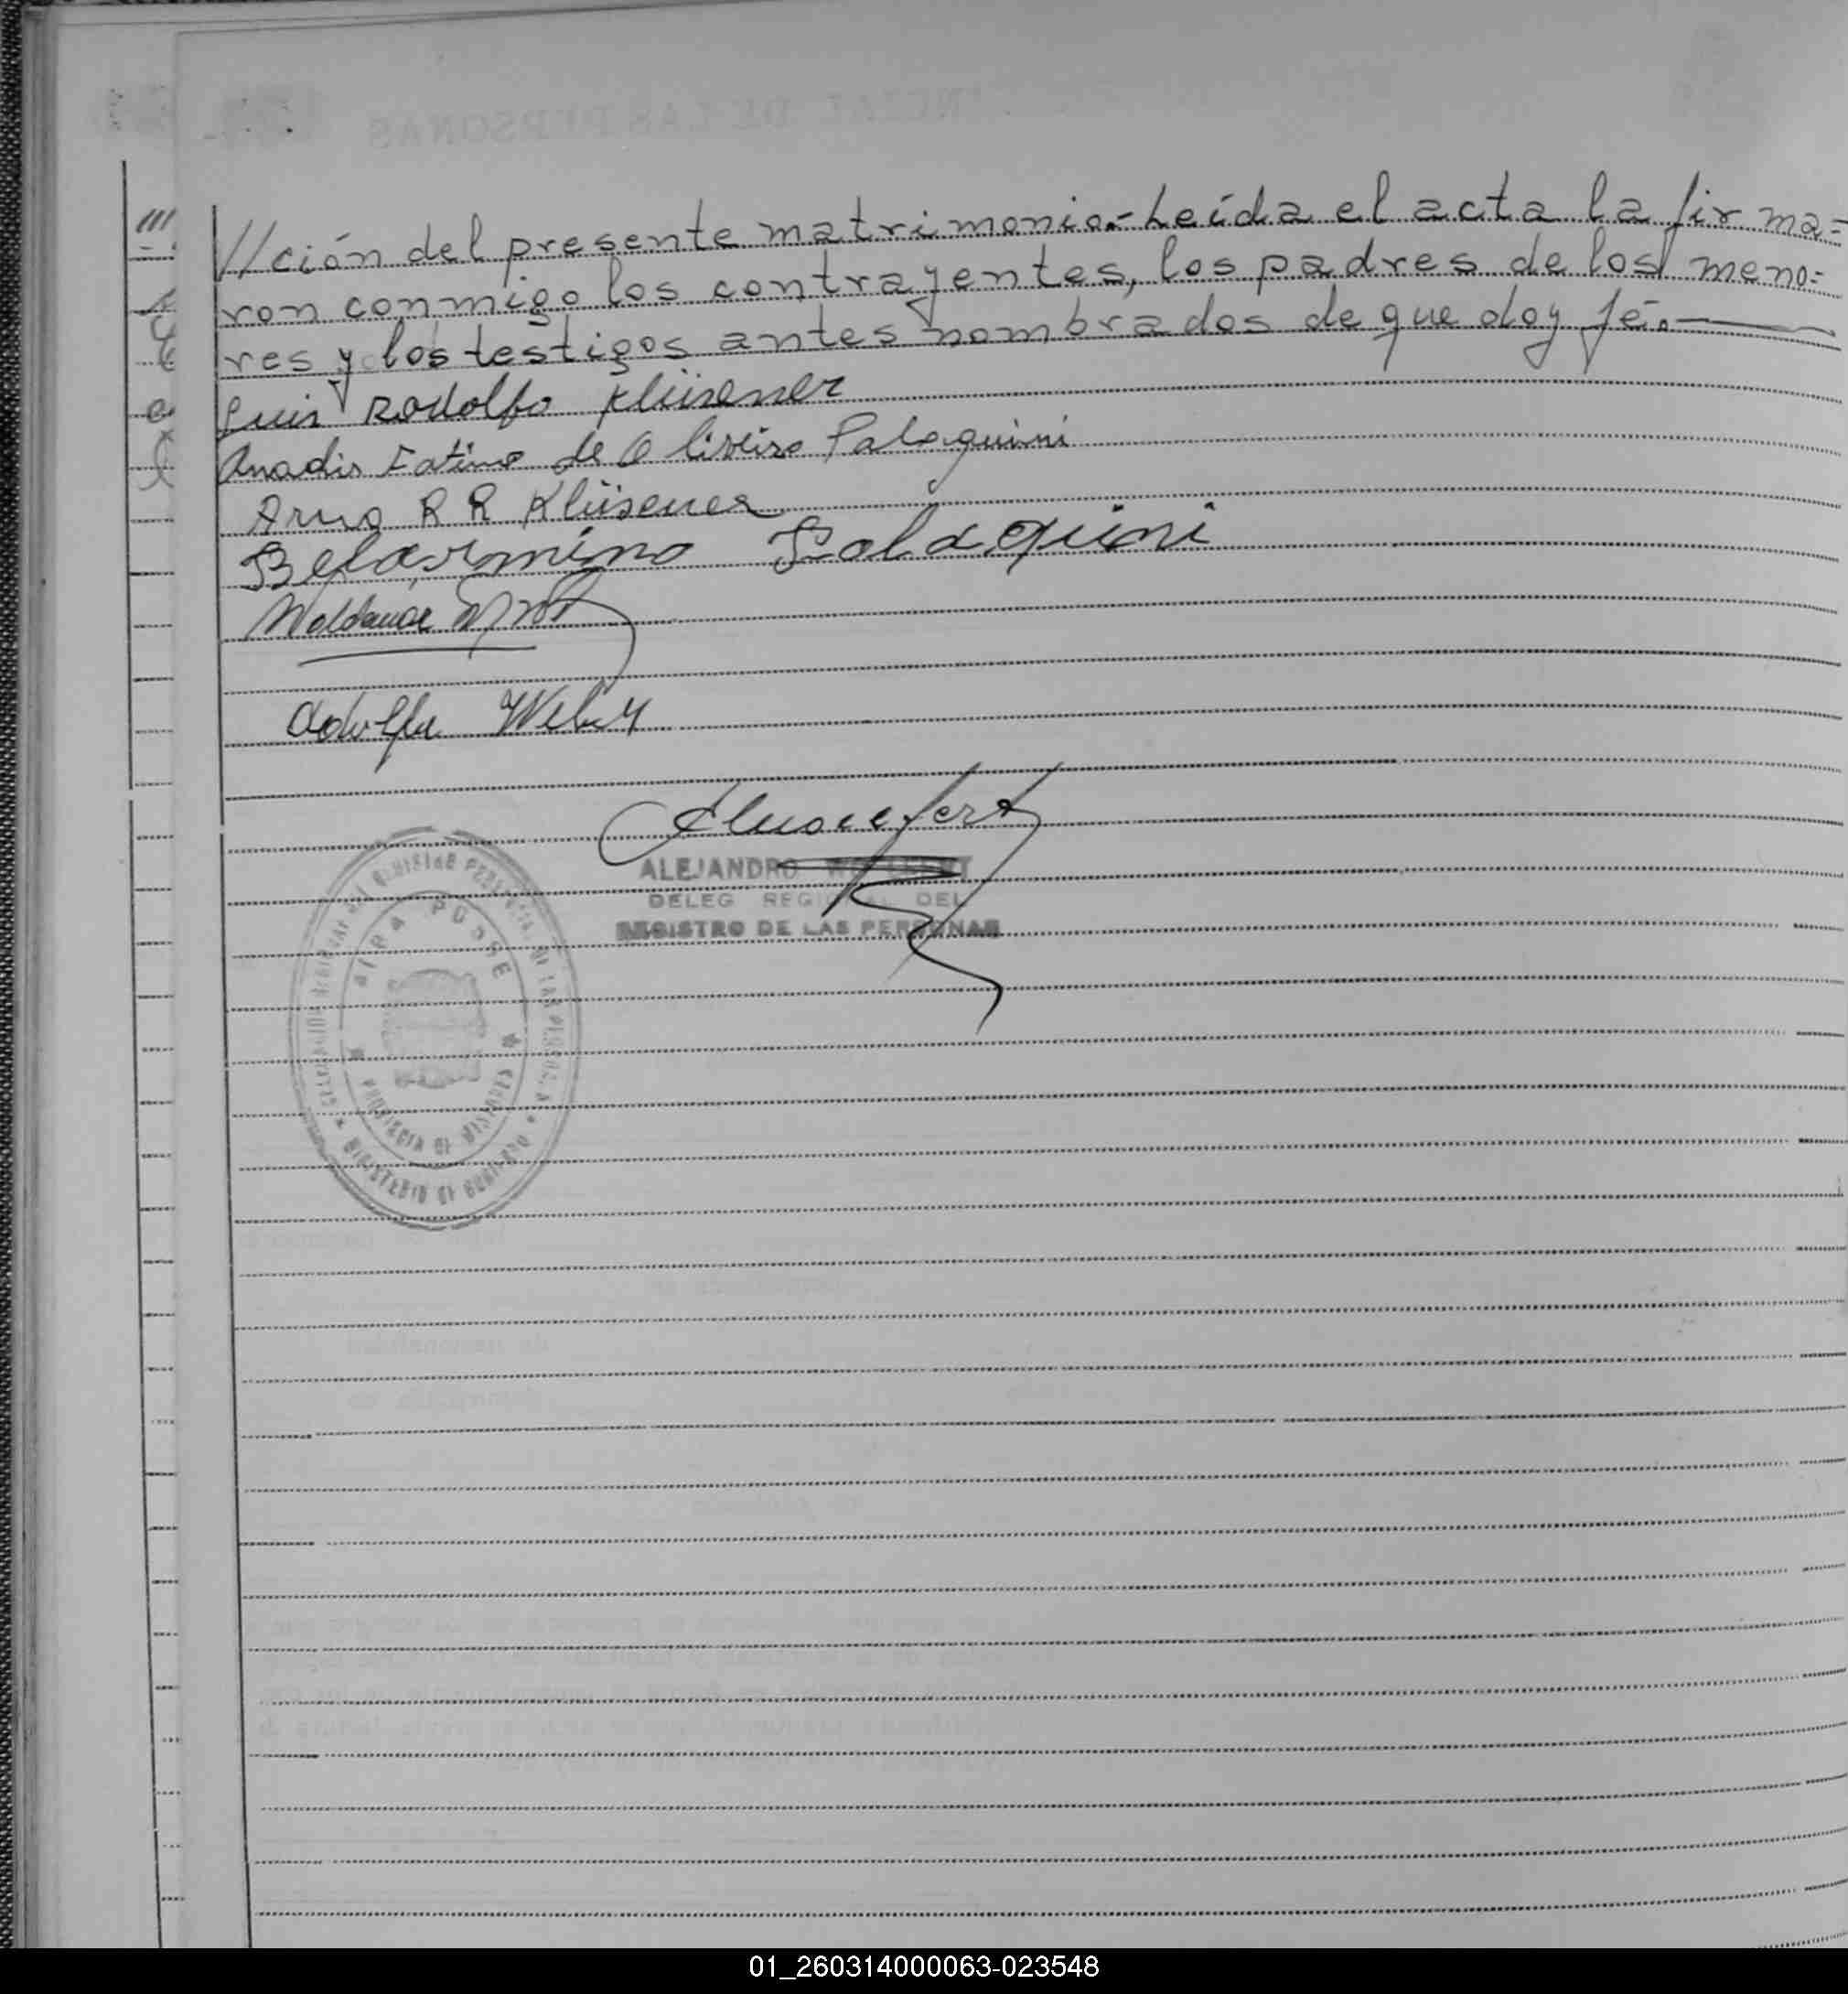 //ción del presente matrimonio.- Leída el acta la firma=
ron conmigo los contrayentes, los padres de los meno=
res y los testigos antes nombrados de que doy fé.-
Luis Rodolfo Klüsener
Anadir Fatima de Oliveira Palaquini
Arno R R Klüsener
Belarmino Palaquini
Waldemar
Adolfo Weber
ALEJANDRO
DELEG REGIONAL DEL
REGISTRO DE LAS PERSONAS
PROVINCIA DE MISIONES
MINISTERIO DE GOBIERNO
01_260314000063-023548